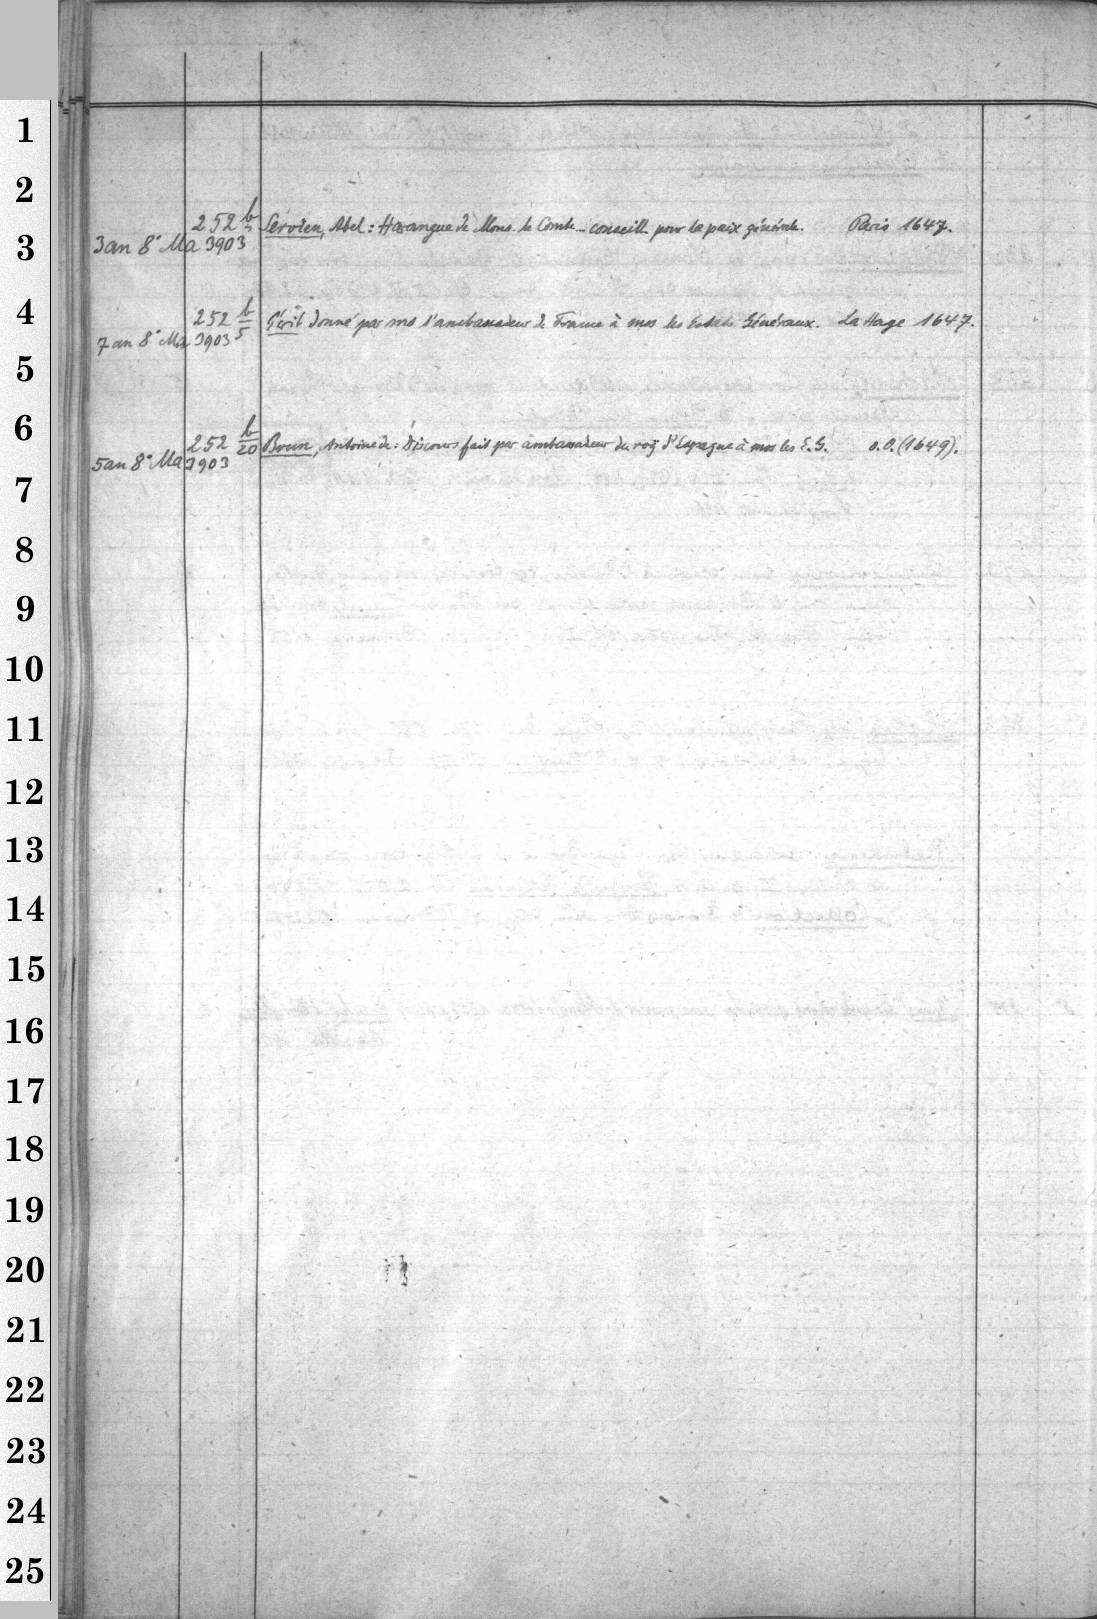 1
2
252 b/3 Servien, Abel: Harangue de Mons. le Comte... conseill. pour la paix générale. Paris 1647.
3 3an 8° Ma 3903
4 252 b/5 Écrit donné par mrs l'ambassadeur de France à mrs les Estats Généraux. La Haye 1647.
7an 8° Ma 3903
5
6 252 b/20 Brun, Antoine de: Discours fait par ambassadeur du roÿ d'Espagne à mrs les E. G. o. O. (1649).
5an 8° Ma 3903
7
8
9
10
11
12
13
14
15
16
17
18
19
20
21
22
23
24
25